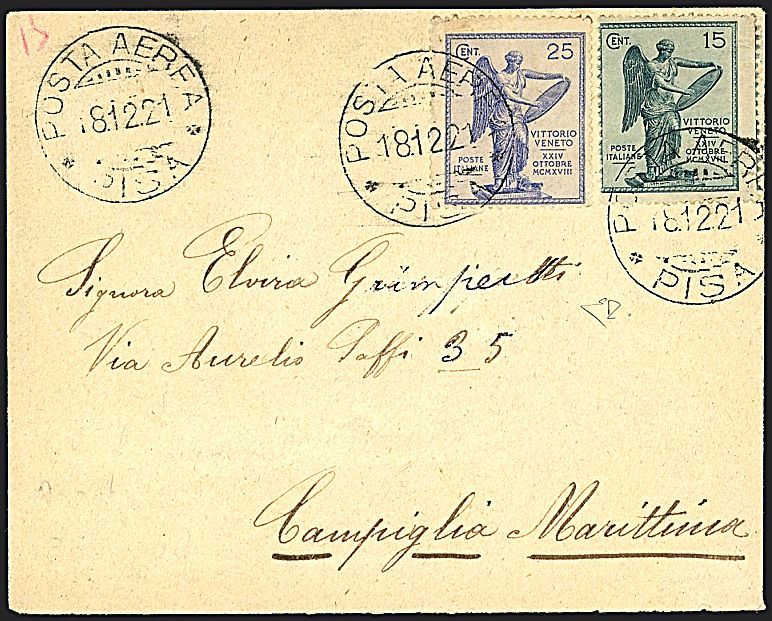 13
POSTA AEREA
18.12.21
PISA
POSTA AEREA
18.12.21
PISA
CENT. 25
VITTORIO
VENETO
XXIV
OTTOBRE
MCMXVIII
POSTE
ITALIANE
CENT. 15
VITTORIO
VENETO
XXIV
OTTOBRE
MCMXVIII
POSTE
ITALIANE
POSTA AEREA
18.12.21
PISA
Signora Elvira
Via Aurelio Saffi 35
Campiglia Marittima